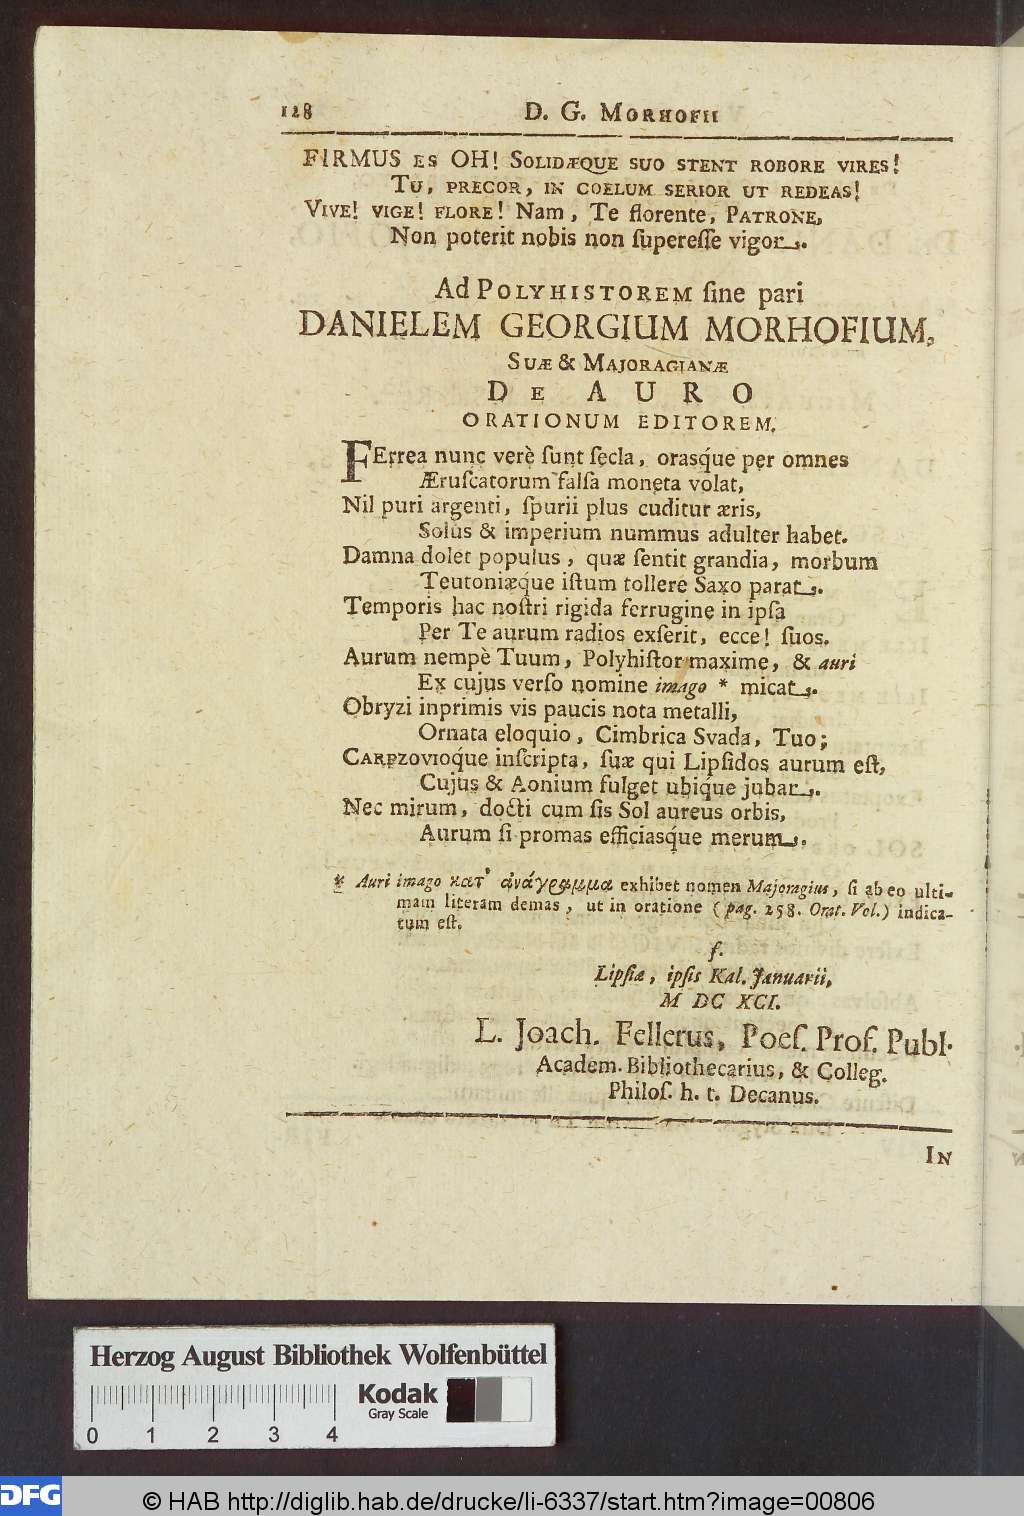 128 D. G. MORHOFII
FIRMUS ES OH! SOLIDÆQUE SUO STENT ROBORE VIRES!
TU, PRECOR, IN COELUM SERIOR UT REDEAS!
VIVE! VIGE! FLORE! Nam, Te florente, PATRONE,
Non poterit nobis non ſupereſſe vigor.
Ad POLYHISTOREM ſine pari
DANIELEM GEORGIUM MORHOFIUM,
SUÆ & MAJORAGIANÆ
DE AURO
ORATIONUM EDITOREM.
FErrea nunc verè ſunt ſecla, orasq́ue per omnes
Æruſcatorum falſa moneta volat,
Nil puri argenti, ſpurii plus cuditur æris,
Solus & imperium nummus adulter habet.
Damna dolet populus, quæ ſentit grandia, morbum
Teutoniæq́ue iſtum tollere Saxo parat.
Temporis hac noſtri rigida ferrugine in ipſa
Per Te aurum radios exſerit, ecce! ſuos.
Aurum nempè Tuum, Polyhiſtor maxime, & auri
Ex cujus verſo nomine imago * micat.
Obryzi inprimis vis paucis nota metalli,
Ornata eloquio, Cimbrica Svada, Tuo;
CARPZOVIOq́ue inſcripta, ſuæ qui Lipſidos aurum eſt,
Cujus & Aonium fulget ubiq́ue jubar.
Nec mirum, docti cum ſis Sol aureus orbis,
Aurum ſi promas efficiasq́ue merum.
* Auri imago κατ' ἀνάγραμμα exhibet nomen Majoragius, ſi ab eo ulti-
mam literam demas, ut in oratione (pag. 258. Orat. Vol.) indica-
tum eſt.
f.
Lipſiæ, ipſis Kal. Januarii,
M DC XCI.
L. Joach. Fellerus, Poeſ. Prof. Publ.
Academ. Bibliothecarius, & Colleg.
Philoſ. h. t. Decanus.
IN
Herzog August Bibliothek Wolfenbüttel
Kodak
Gray Scale
0 1 2 3 4
DFG
© HAB http://diglib.hab.de/drucke/li-6337/start.htm?image=00806